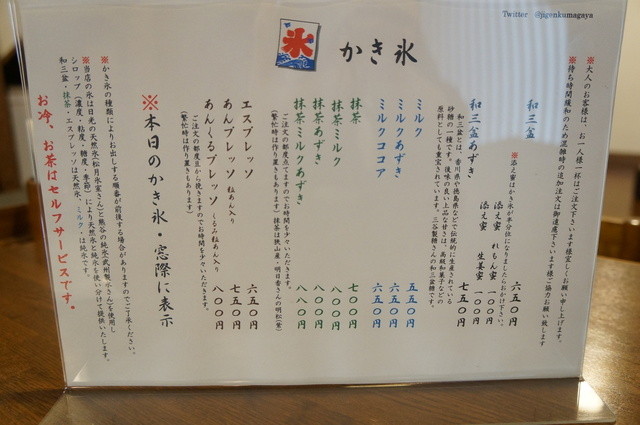 Twitter @jigenkumagaya
氷
かき氷
※大人のお客様は、お一人様一杯はご注文下さいます様宜しくお願い申し上げます。
※待ち時間緩和のため混雑時の追加注文は御遠慮下さいます様ご協力お願い致します
和三盆 六五〇円
※添え蜜はかき氷が半分位になりましたらおかけ下さい。
添え蜜 れもん蜜 一〇〇円
添え蜜 生姜蜜 一〇〇円
和三盆あずき 七五〇円
和三盆とは、香川県や徳島県などで伝統的に生産されている
砂糖の一種です。後味の良い上品な甘さは、高級和菓子などの
原料としても重宝されています。三谷製糖さんの和三盆糖です。
ミルク 五五〇円
ミルクあずき 六五〇円
ミルクココア 六五〇円
抹茶 七〇〇円
抹茶ミルク 八〇〇円
抹茶あずき 八〇〇円
抹茶ミルクあずき 八八〇円
ご注文の都度点てますのでお時間を少々いただきます。
(繁忙時は作り置きもあります)抹茶は狭山産・明日香さんの明松(薫)
エスプレッソ 六五〇円
あんプレッソ 粒あん入り 七五〇円
あんくるプレッソ くるみ粒あん入り 八〇〇円
ご注文の都度豆から挽きますのでお時間を少々いただきます。
(繁忙時は作り置きもあります)
※本日のかき氷・窓際に表示
※かき氷の種類によりお出しする順番が前後する場合がありますのでご了承ください。
※当店の氷は日光の天然氷(松月氷室さん)と熊谷の純氷(武州製氷さん)を使用し
シロップ(濃度・粘度・糖度・季節)により天然氷と純氷を使い分けて提供いたします。
和三盆・抹茶・エスプレッソは天然氷、ミルク・は純氷です。
お冷、お茶はセルフサービスです。